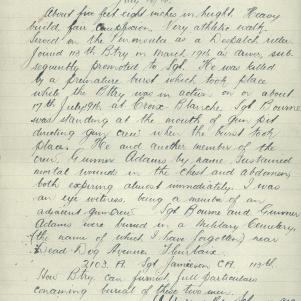 About five feet eight inches in height. Heavy
build fair complexion. Very athletic walk
served on the Peninsula as a Despatch rider
joined 113th Bty in March 1916 as            , sub-
sequently promoted to Sgt. He was killed
by a premature burst which took place
while the Btry was in action on or about
17th July 1916. at Croix Blanche. Sgt Bourne
was standing at the mouth of gun pit
directing gun crew when the burst took
place. He and another member of the
crew Gunner Adams by name sustained
mortal wounds in the chest and abdomen
both expiring almost immediately. I was
an eye witness, being a member of an
adjacent gun crew. Sgt Bourne and Gunner
Adams were buried in a Military Cemetery
(the name of which I have forgotten) near
Dead Dog Avenue, Fleurbaix.
2103. A. Sgt Jamieson C.A. 113th
How Btry Can furnish full particulars
concerning burial of these two men.